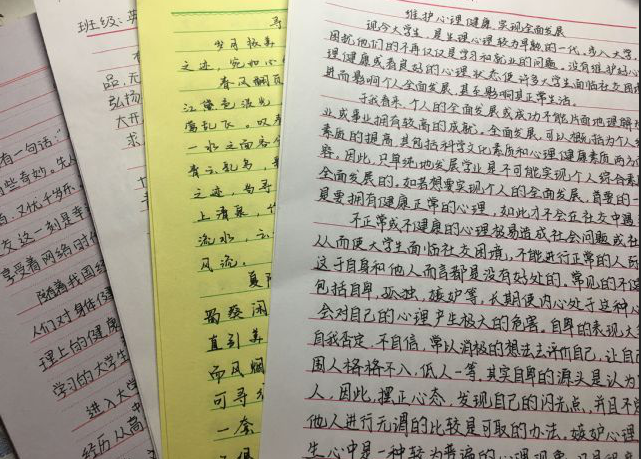 有一句话："
享受着网络的
随着我国经
人们对身体健
理上的健康
学习的大学生
进入大学
经历从高中
班级：英
品，无
弘扬
大开
求
岁月
之迹，宛如
春风翻
江
莺乱飞。
一水之面容
春云乱鸟，
之迹，
上清泉，
流水，云
风流。
夏
蜀葵闲
直到
而风烟
可寻
一套
维护心理健康，实现全面发展
现今大学生，是生理心理较为早熟的一代，步入大学，
困扰他们的不再仅仅是学习和就业的问题，没有维护好心
理健康或者良好的心理状态使许多大学生面临社交困
进而影响个人全面发展，甚至影响其正常生活。
于我看来，个人的全面发展或成功不能片面地理解为
业或事业拥有较高的成就。全面发展，可以概括为个人
素质的提高，其包括科学文化素质和心理健康素质两方
容，因此，只单纯地发展学业是不可能实现个人综合素
全面发展的，如若想要实现个人的全面发展，首要的一
是要拥有健康正常的心理，如此才不会在社交中遇
不正常或不健康的心理极易造成社会问题或社
从而使大学生面临社交困境，不能进行正常的人际
这于自身和他人而言都是没有好处的。常见的不健
包括自卑，孤独，嫉妒等，长期使内心处于这种心
会对自己的心理产生极大的危害。自卑的表现大
自我否定，不自信，常以消极的想法去评价自己，让自己
围人格格不入，低人一等，其实自卑的源头是认为
人，因此，摆正心态，发现自己的闪光点，并且不
他人进行无谓的比较是可取的办法，嫉妒心理
生心中是一种较为普遍的心理现象，只是程度